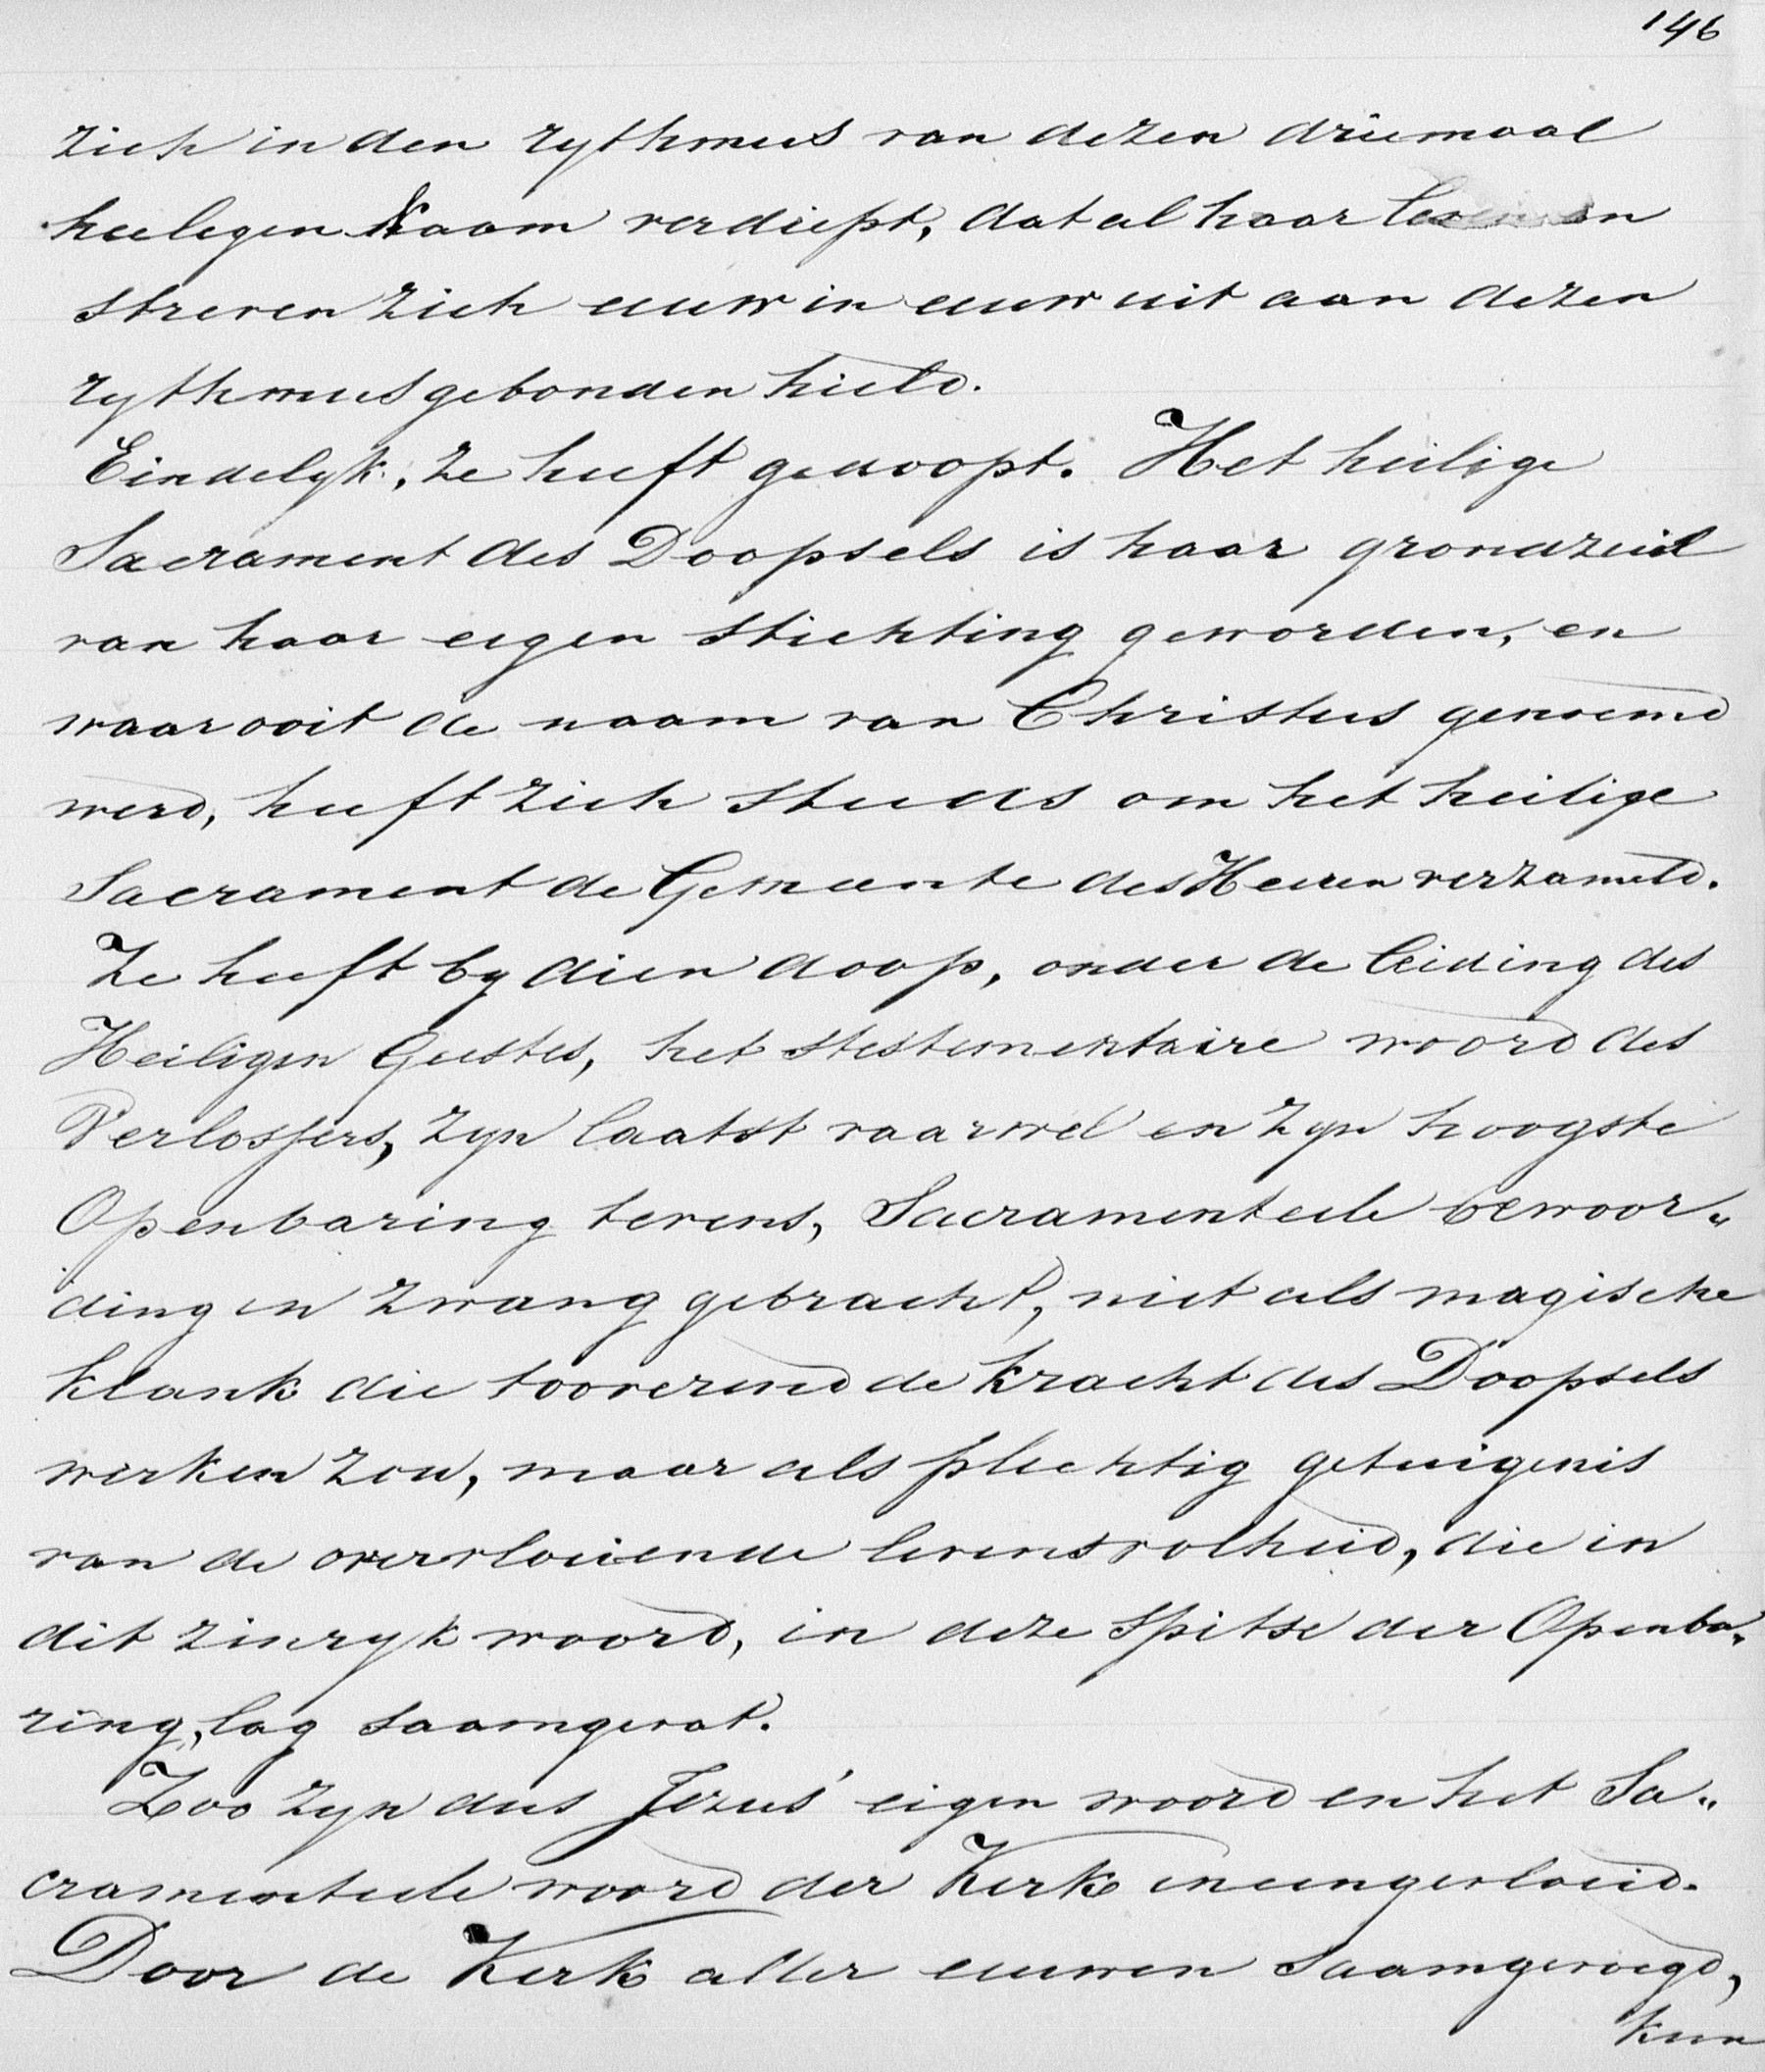 146
zich in den rythmus van dezen driemaal
heiligen Naam verdiept, dat al haar leven en
streven zich eeuw in eeuw uit aan dezen
rythmus gebonden hield.
Eindelyk, ze heeft gedoopt. Het heilige
Sacrament des Doopsels is haar grondzuil
van haar eigen stichting geworden, en
waar ooit de naam van Christus genoemd
werd, heeft zich steeds om het heilige
Sacrament de Gemeente des Heeren verzameld.
Ze heeft by dien doop, onder de leiding des
Heiligen Geestes, het stestementaire woord des
Verlossers, zyn laatst vaarwel en zyn hoogste
Openbaring tevens, Sacramenteele bewoor„
ding in zwang gebracht, niet als magische
klank die tooverend de kracht des Doopsels
werken zou, maar als plechtig getuigenis
van de overvloeiende levensvolheid, die in
dit zinryk woord, in deze spitse der Openba„
ring, lag saamgevat.
Zoo zyn dus Jezus' eigen woord en het Sa„
cramenteele woord der Kerk ineengevloeid.
Door de Kerk aller eeuwen saamgevoegd,
kun